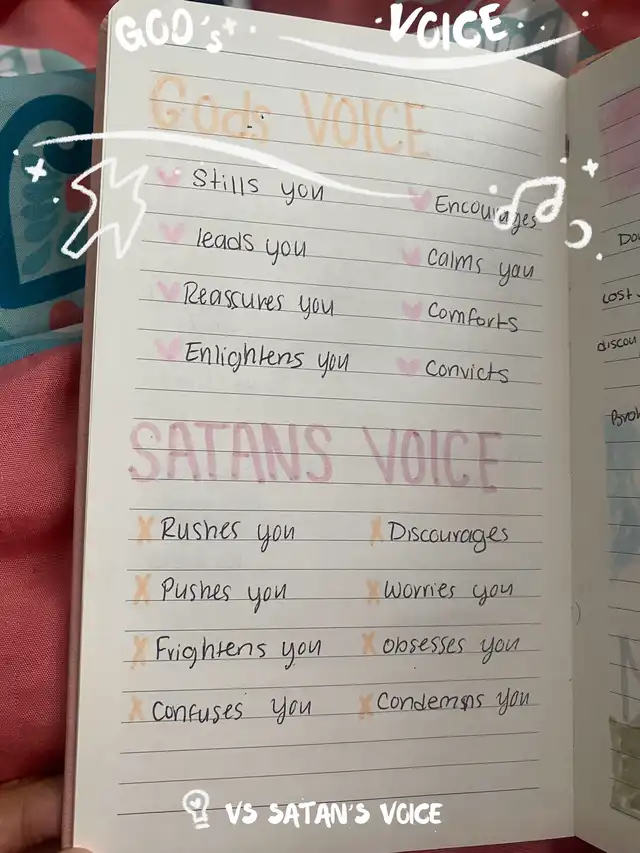 GOD's VOICE
Gods VOICE
Stills you
Encourages
leads you
Calms you
Reassures you
Comforts
Enlightens you
Convicts
SATANS VOICE
Rushes you
Discourages
Pushes you
Worries you
Frightens you
Obsesses you
Confuses you
Condemns you
lost
VS SATAN'S VOICE